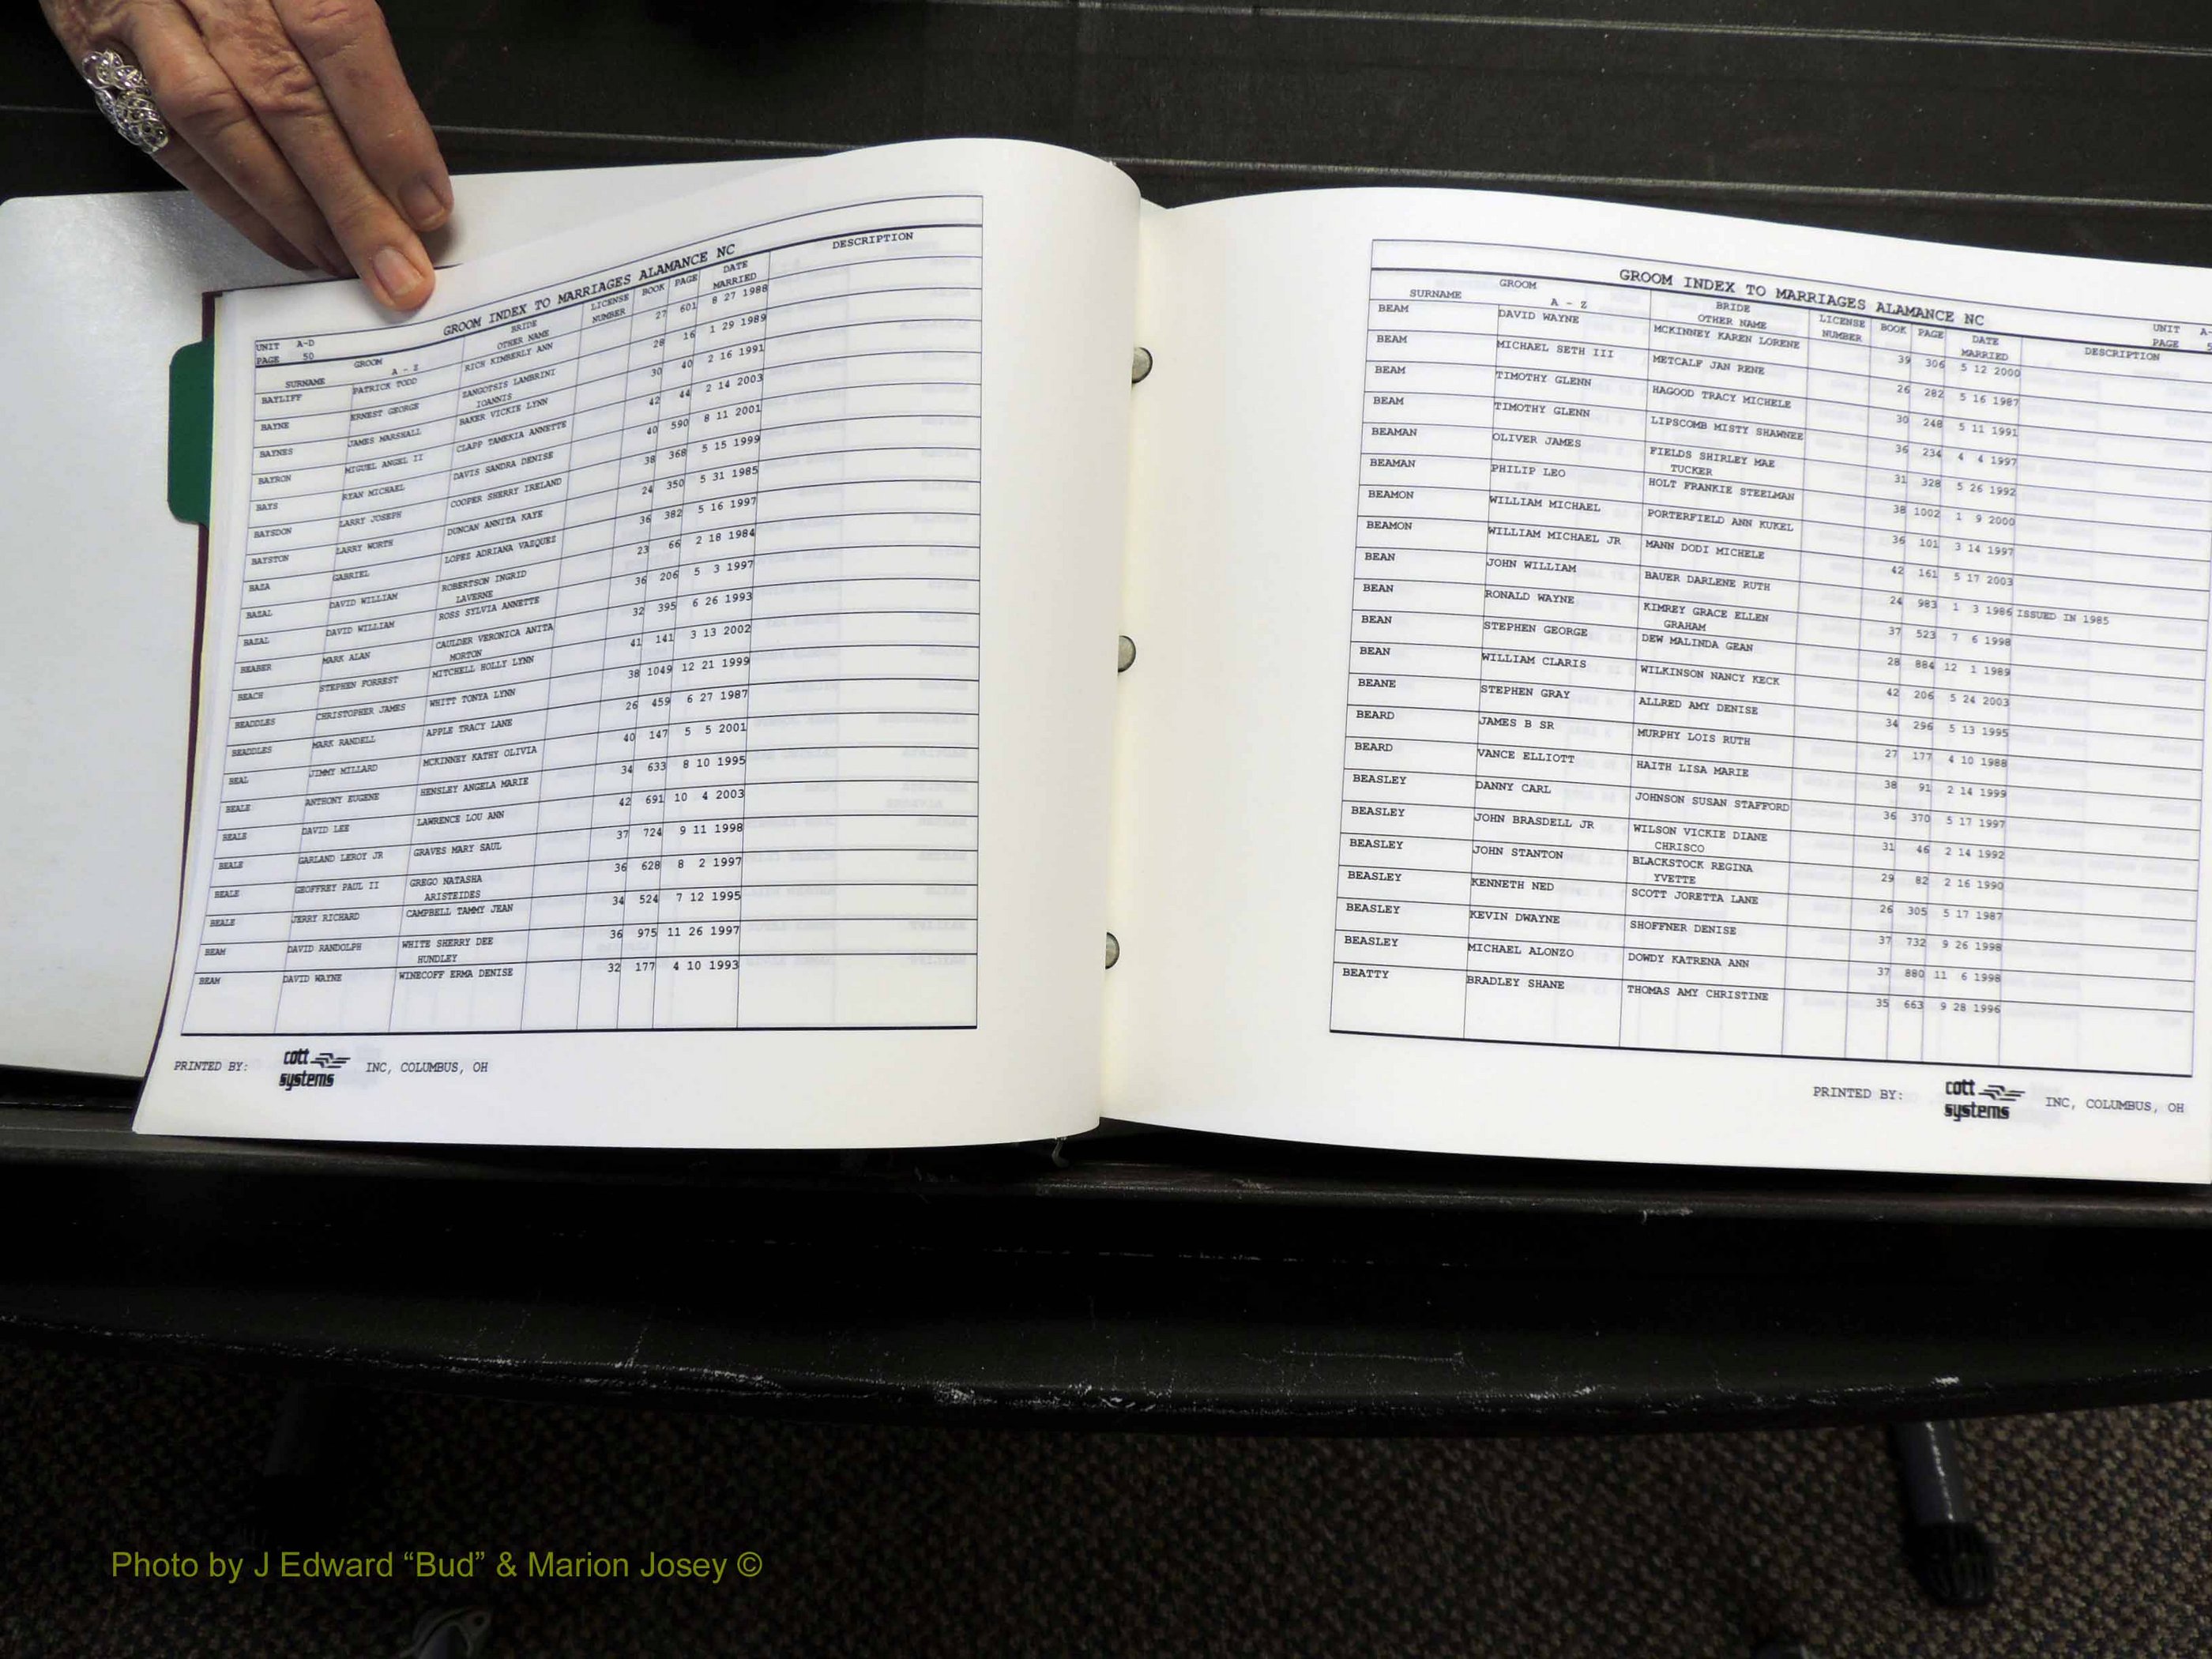 GROOM INDEX TO MARRIAGES ALAMANCE NC
UNIT A-D
PAGE 50
GROOM BRIDE LICENSE BOOK PAGE DATE DESCRIPTION
SURNAME A - Z OTHER NAME NUMBER MARRIED
BAYLIFF PATRICK TODD RICH KIMBERLY ANN 27 601 8 27 1988
BAYNE ERNEST GEORGE ZANGOTSIS LAMBRINI 28 16 1 29 1989
IOANNIS
BAYNES JAMES MARSHALL BAKER VICKIE LYNN 30 40 2 16 1991
BAYRON MIGUEL ANGEL II CLAPP TAMEKIA ANNETTE 42 44 2 14 2003
BAYS RYAN MICHAEL DAVIS SANDRA DENISE 40 590 8 11 2001
BAYSDON LARRY JOSEPH COOPER SHERRY IRELAND 38 368 5 15 1999
BAYSTON LARRY WORTH DUNCAN ANNITA KAYE 24 350 5 31 1985
BAZA GABRIEL LOPEZ ADRIANA VAZQUEZ 36 382 5 16 1997
BAZAL DAVID WILLIAM ROBERTSON INGRID 23 66 2 18 1984
LAVERNE
BAZAL DAVID WILLIAM ROSS SYLVIA ANNETTE 36 206 5 3 1997
BEABER MARK ALAN CAULDER VERONICA ANITA 32 395 6 26 1993
MORTON
BEACH STEPHEN FORREST MITCHELL HOLLY LYNN 41 141 3 13 2002
BEADDLES CHRISTOPHER JAMES WHITT TONYA LYNN 38 1049 12 21 1999
BEADDLES MARK RANDELL APPLE TRACY LANE 26 459 6 27 1987
BEAL JIMMY MILLARD MCKINNEY KATHY OLIVIA 40 147 5 5 2001
BEALE ANTHONY EUGENE HENSLEY ANGELA MARIE 34 633 8 10 1995
BEALE DAVID LEE LAWRENCE LOU ANN 42 691 10 4 2003
BEALE GARLAND LEROY JR GRAVES MARY SAUL 37 724 9 11 1998
BEALE GEOFFREY PAUL II GREGO NATASHA 36 628 8 2 1997
ARISTEIDES
BEALE JERRY RICHARD CAMPBELL TAMMY JEAN 34 524 7 12 1995
BEAM DAVID RANDOLPH WHITE SHERRY DEE 36 975 11 26 1997
HUNDLEY
BEAM DAVID WAYNE WINECOFF ERMA DENISE 32 177 4 10 1993
PRINTED BY: cott systems INC, COLUMBUS, OH
GROOM INDEX TO MARRIAGES ALAMANCE NC
UNIT A-
PAGE 5
GROOM BRIDE LICENSE BOOK PAGE DATE DESCRIPTION
SURNAME A - Z OTHER NAME NUMBER MARRIED
BEAM DAVID WAYNE MCKINNEY KAREN LORENE 39 306 5 12 2000
BEAM MICHAEL SETH III METCALF JAN RENE 26 282 5 16 1987
BEAM TIMOTHY GLENN HAGOOD TRACY MICHELE 30 248 5 11 1991
BEAM TIMOTHY GLENN LIPSCOMB MISTY SHAWNEE 36 234 4 4 1997
BEAMAN OLIVER JAMES FIELDS SHIRLEY MAE 31 328 5 26 1992
TUCKER
BEAMAN PHILIP LEO HOLT FRANKIE STEELMAN 38 1002 1 9 2000
BEAMON WILLIAM MICHAEL PORTERFIELD ANN KUKEL 36 101 3 14 1997
BEAMON WILLIAM MICHAEL JR MANN DODI MICHELE 42 161 5 17 2003
BEAN JOHN WILLIAM BAUER DARLENE RUTH 24 983 1 3 1986 ISSUED IN 1985
BEAN RONALD WAYNE KIMREY GRACE ELLEN 37 523 7 6 1998
GRAHAM
BEAN STEPHEN GEORGE DEW MALINDA GEAN 28 884 12 1 1989
BEAN WILLIAM CLARIS WILKINSON NANCY KECK 42 206 5 24 2003
BEANE STEPHEN GRAY ALLRED AMY DENISE 34 296 5 13 1995
BEARD JAMES B SR MURPHY LOIS RUTH 27 177 4 10 1988
BEARD VANCE ELLIOTT HAITH LISA MARIE 38 91 2 14 1999
BEASLEY DANNY CARL JOHNSON SUSAN STAFFORD 36 370 5 17 1997
BEASLEY JOHN BRASDELL JR WILSON VICKIE DIANE 31 46 2 14 1992
CHRISCO
BEASLEY JOHN STANTON BLACKSTOCK REGINA 29 82 2 16 1990
YVETTE
BEASLEY KENNETH NED SCOTT JORETTA LANE 26 305 5 17 1987
BEASLEY KEVIN DWAYNE SHOFFNER DENISE 37 732 9 26 1998
BEASLEY MICHAEL ALONZO DOWDY KATRENA ANN 37 880 11 6 1998
BEATTY BRADLEY SHANE THOMAS AMY CHRISTINE 35 663 9 28 1996
PRINTED BY: cott systems INC, COLUMBUS, OH
Photo by J Edward “Bud” & Marion Josey ©